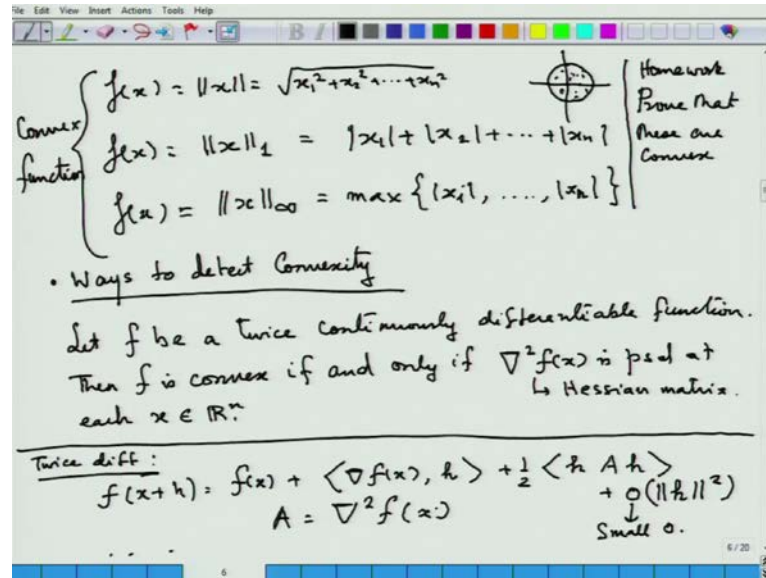 File Edit View Insert Actions Tools Help
B I
Convex function
f(x) = ||x|| = √x₁² + x₂² + ⋯ + xₙ²
f(x) = ||x||₁ = |x₁| + |x₂| + ⋯ + |xₙ|
f(x) = ||x||∞ = max {|x₁|, ...., |xₙ|}
Homework
Prove that
these are
convex
• Ways to detect Convexity
Let f be a twice continuously differentiable function.
Then f is convex if and only if ∇²f(x) is psd at
↳ Hessian matrix.
each x ∈ ℝⁿ.
Twice diff :
f(x+h) = f(x) + ⟨∇f(x), h⟩ + ½ ⟨h Ah⟩
+ o(||h||²)
A = ∇²f(x)
↓
Small o.
. . .
6/20
6